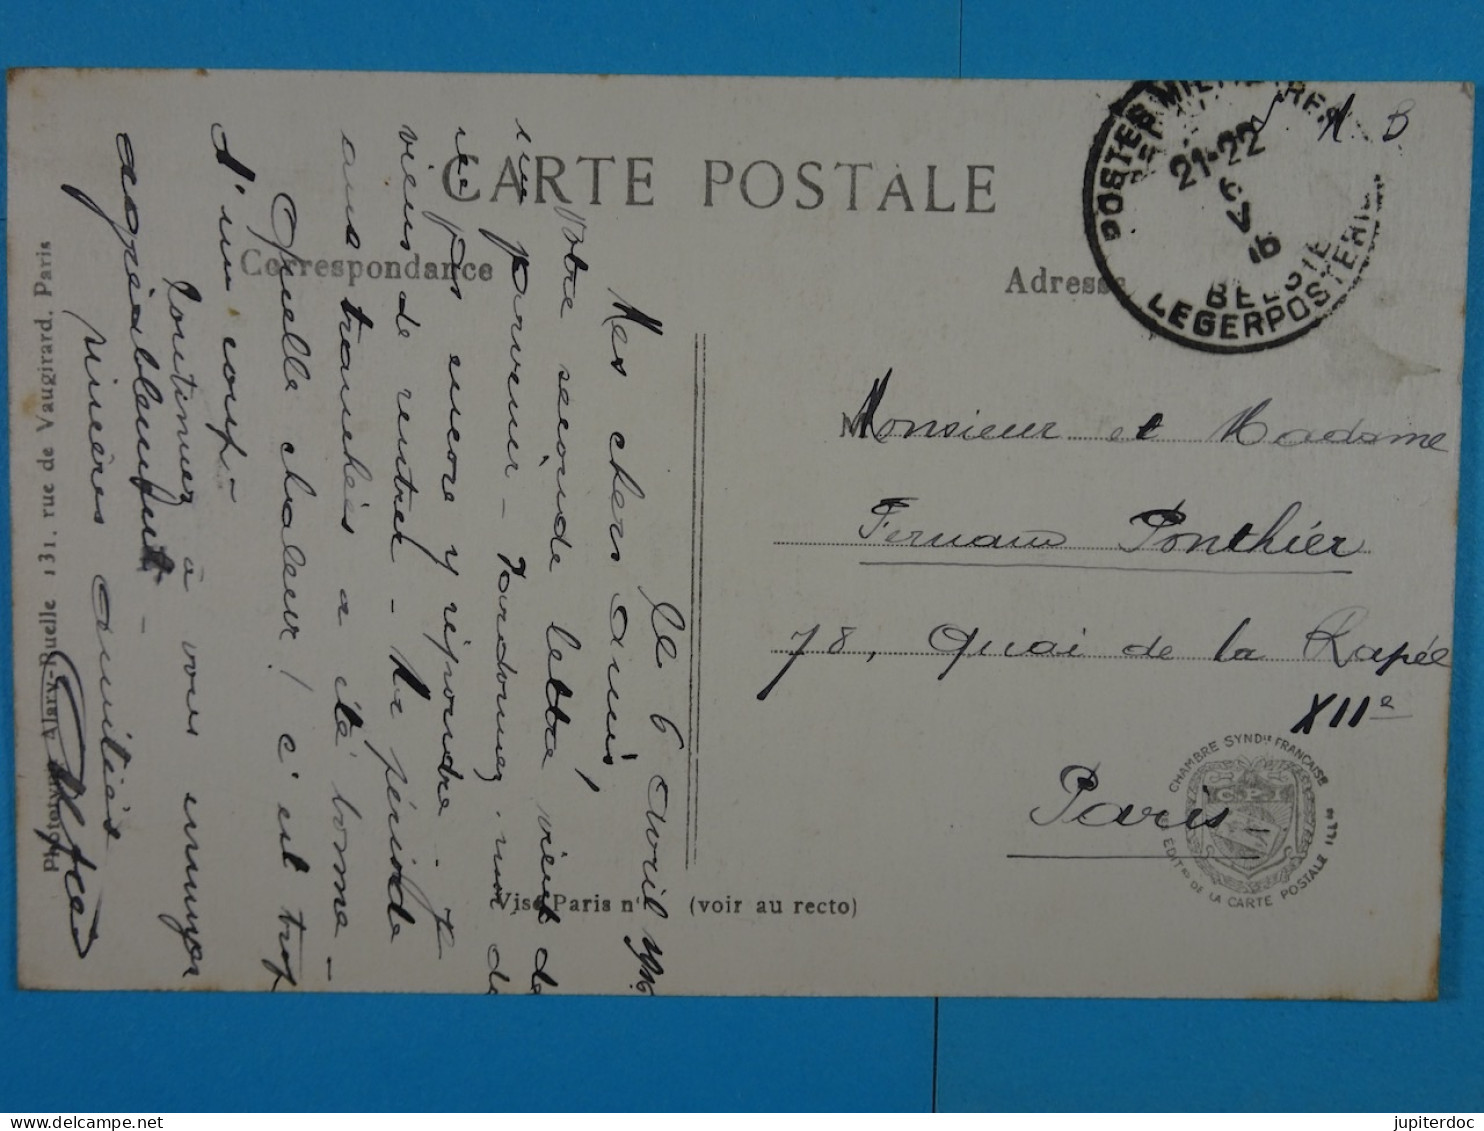 CARTE POSTALE
Correspondance
Adresse
Le 6 avril 1916
Mes chers amis,
Votre seconde lettre vient de
m'parvenir - Pardonnez-moi de
ne pas encore y répondre - Je
viens de rentrer - La période
aux tranchées a été bonne -
Quelle chaleur! c'est trop
d'un coup -
Continuez à vous ennuyer
agréablement -
Sincères amitiés
POSTES MILITAIRES
21-22
BELGIE
LEGERPOSTERIJ
A B
Monsieur et Madame
Fernand Ponthier
78, Quai de la Rapée
XIIe
Paris
CHAMBRE SYNDle FRANÇAISE
C.P.I
EDITrs DE LA CARTE POSTALE ILLée
Visé Paris n° (voir au recto)
Phototypie Alary-Ruelle 131, rue de Vaugirard, Paris
jupiterdoc